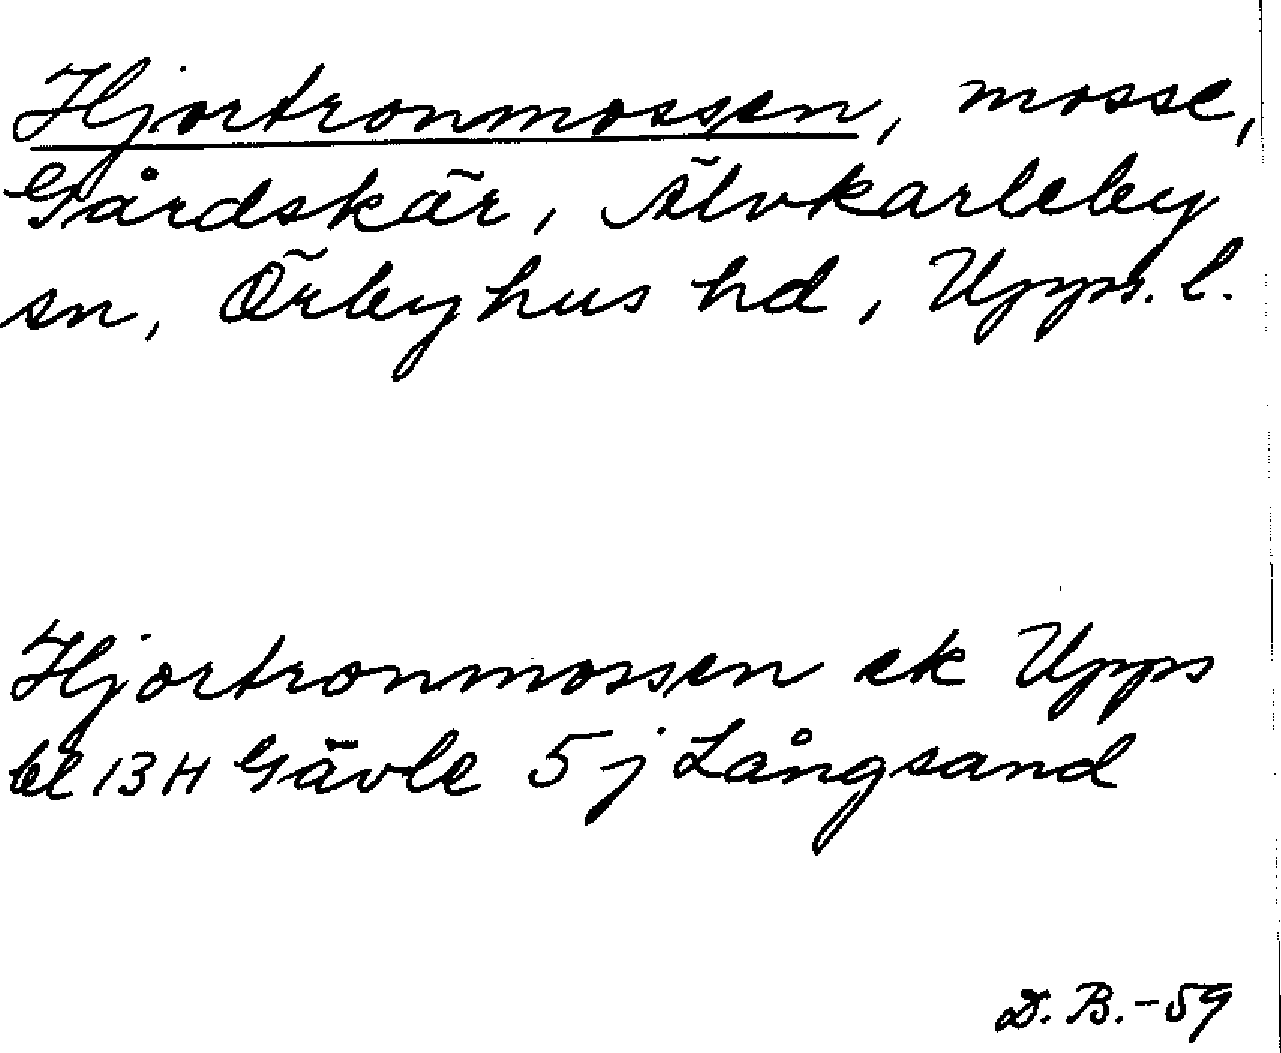 Hjortronmossen, mosse,
Gårdskär, Älvkarleby
sn, Örbyhus hd, Upps. l.
Hjortronmossen ek Upps
bl 13 H Gävle 5 j Långsand
D. B. -59